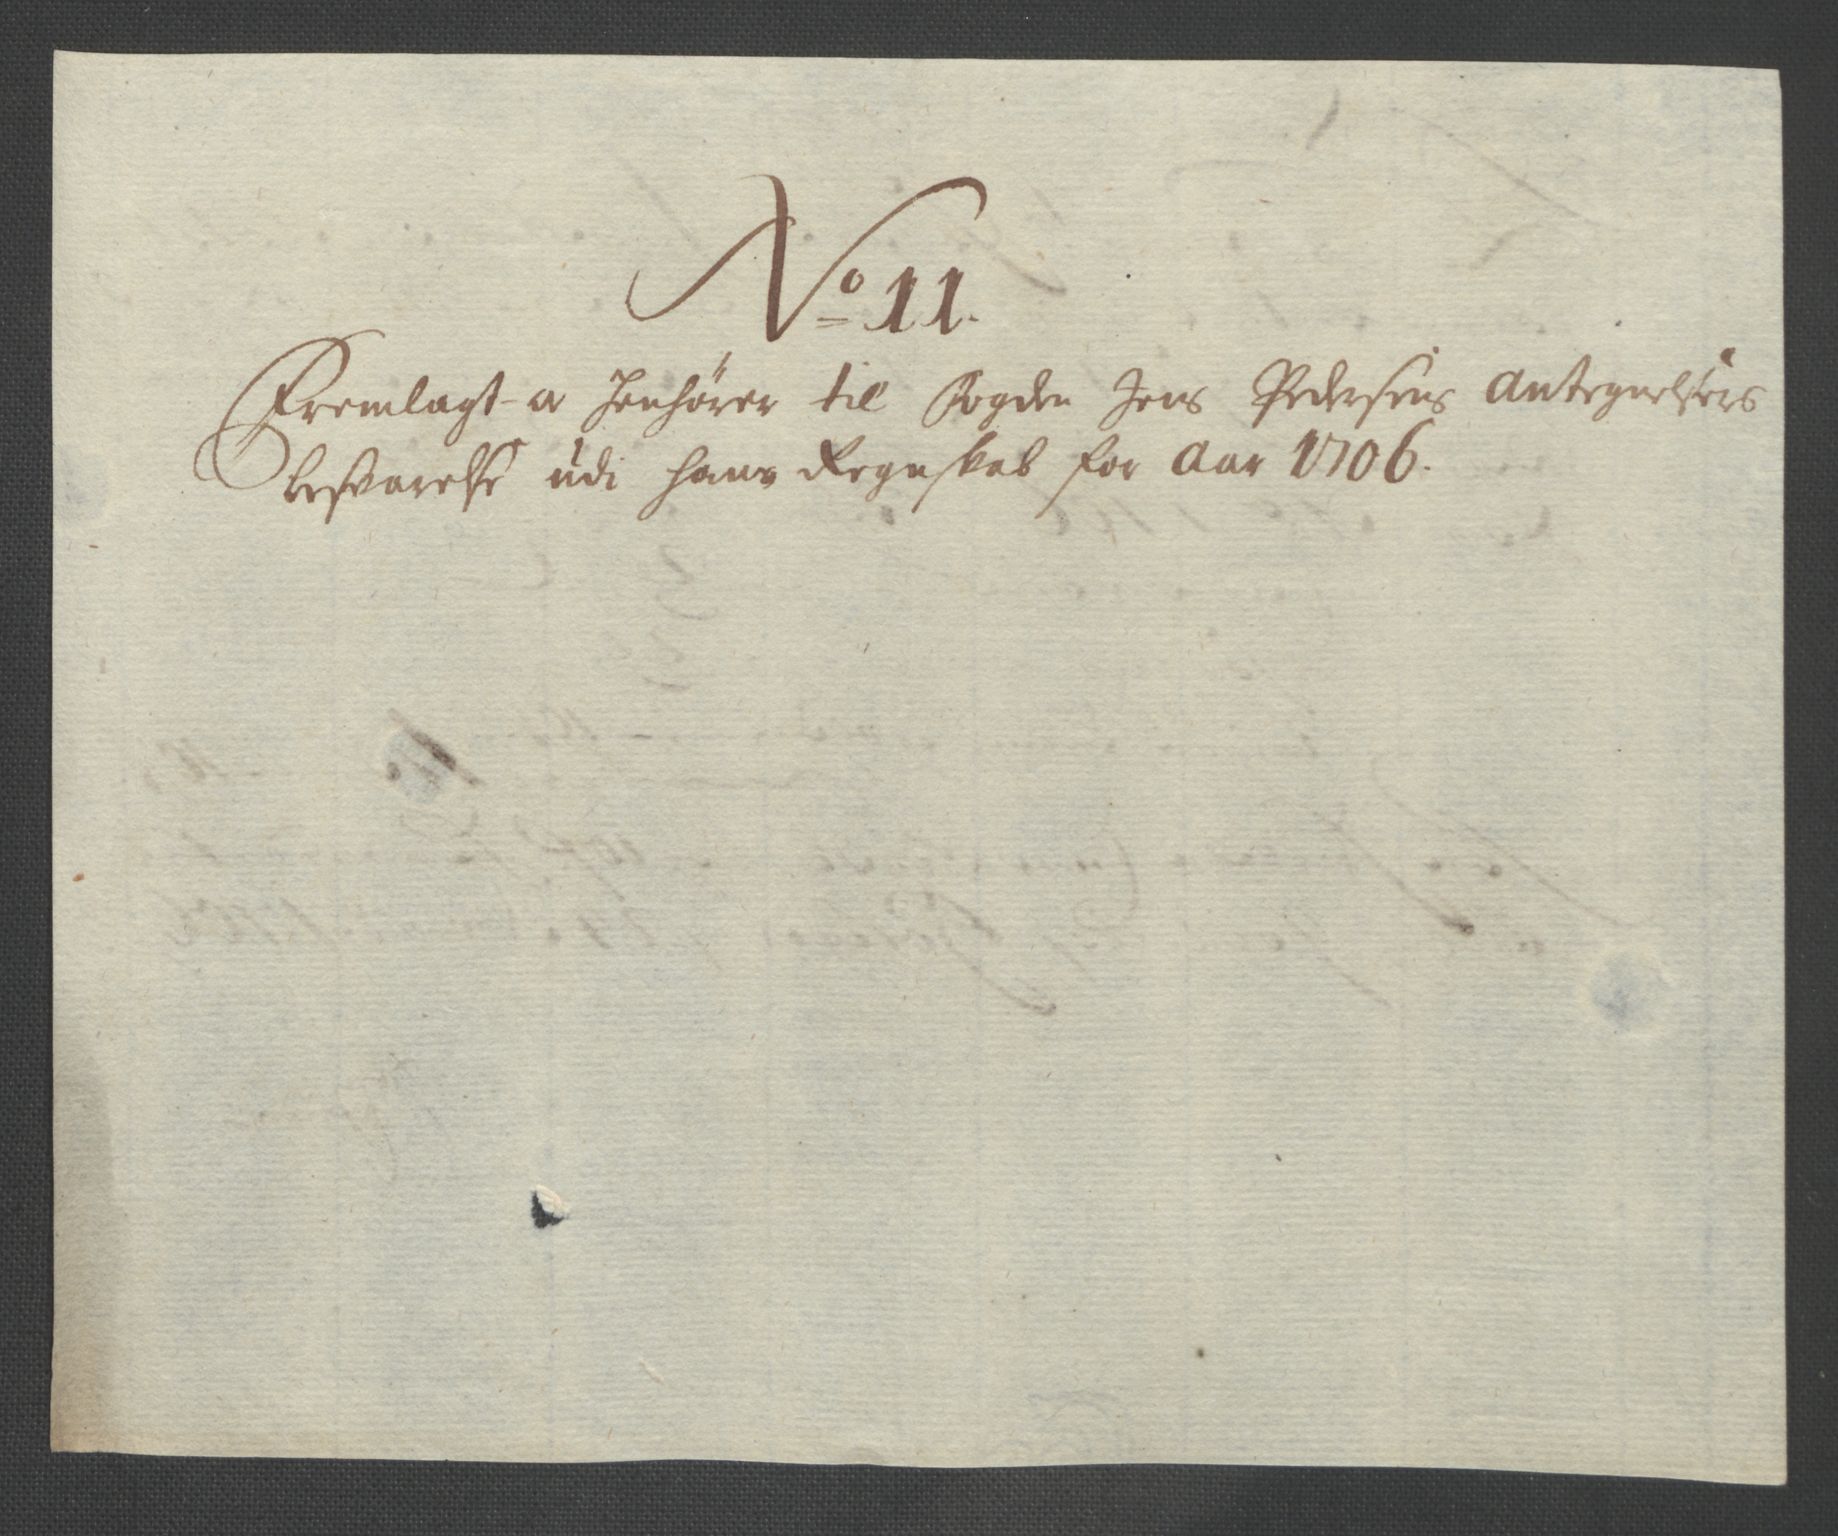 No 11.
Fremlagt og henhører til Fogden Jens Pedersens Antegnelsers
besvarelse udi hans Regnskab for Aar 1706.